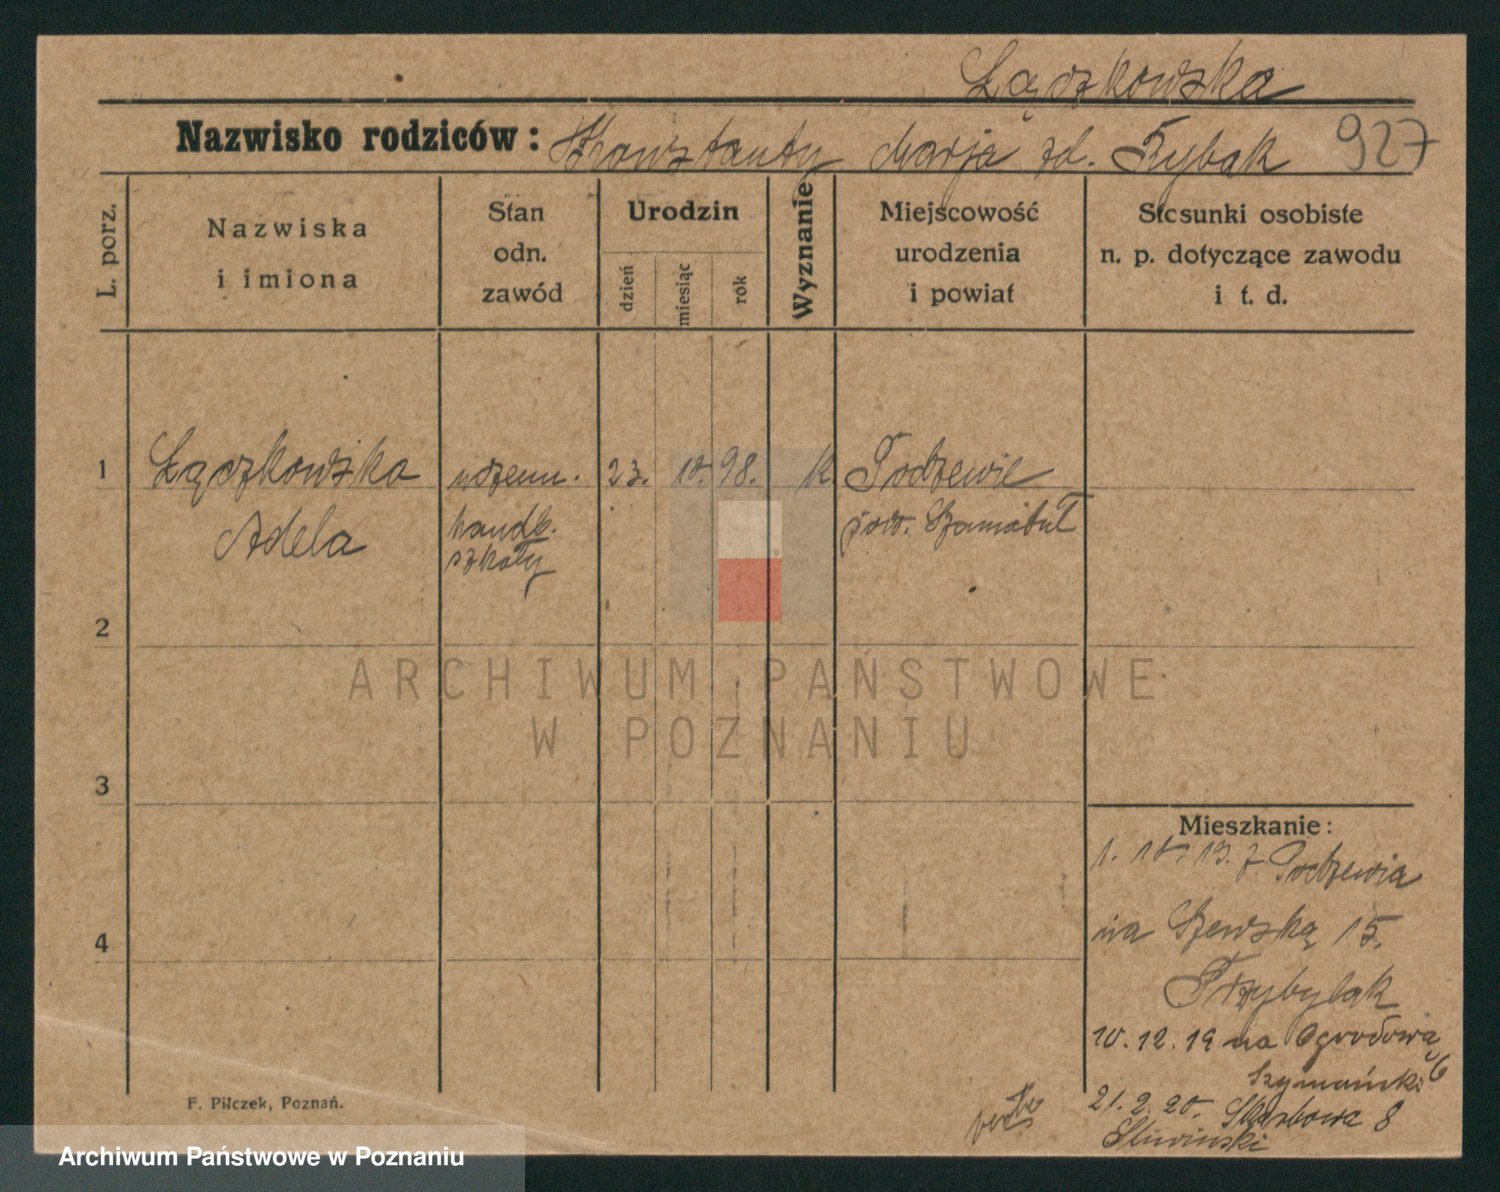 Łączkowska
Nazwisko rodziców: Konstanty Marja zd. Rybak 927
L. porz.
Nazwiska
i imiona
Stan
odn.
zawód
Urodzin
dzień
miesiąc
rok
Wyznanie
Miejscowość
urodzenia
i powiat
Stosunki osobiste
n. p. dotyczące zawodu
i t. d.
1 Łączkowska uczenn. 23. 10. 98. k. Podrzewie
Adela handl. pow. Szamotuł
szkoły
2
ARCHIWUM PAŃSTWOWE
W POZNANIU
3
4
Mieszkanie:
1. 10. 19. z Podrzewia
na Szewską 15.
Przybylak
10.12.19 na Ogrodową 6
Szymański
21.2.20. Skarbowa 8
Śliwiński
F. Pilczek, Poznań.
Archiwum Państwowe w Poznaniu